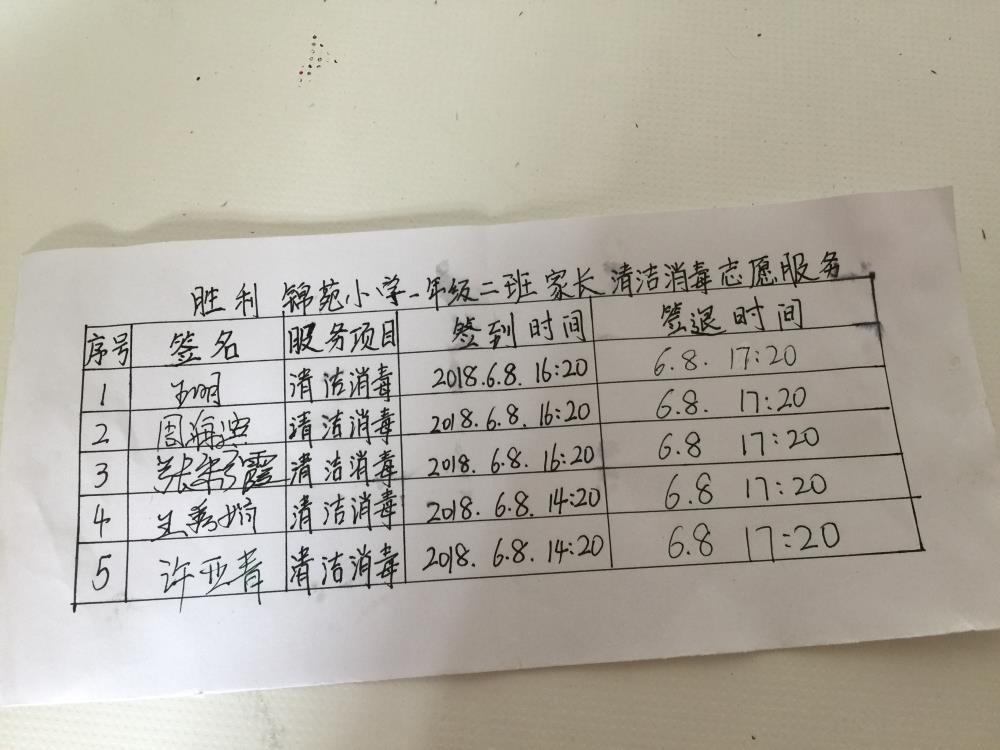 胜利锦苑小学一年级二班家长清洁消毒志愿服务
序号 签名 服务项目 签到时间 签退时间
1 清洁消毒 2018.6.8. 16:20 6.8. 17:20
2 周海 清洁消毒 2018.6.8. 16:20 6.8. 17:20
3 霞 清洁消毒 2018.6.8. 16:20 6.8 17:20
4 王秀娟 清洁消毒 2018.6.8. 14:20 6.8 17:20
5 许亚青 清洁消毒 2018.6.8. 14:20 6.8 17:20